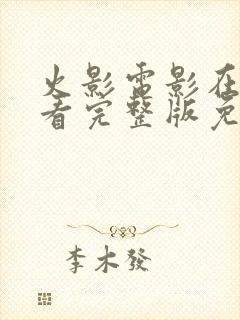 火影雷影在
看完整版免
李木發